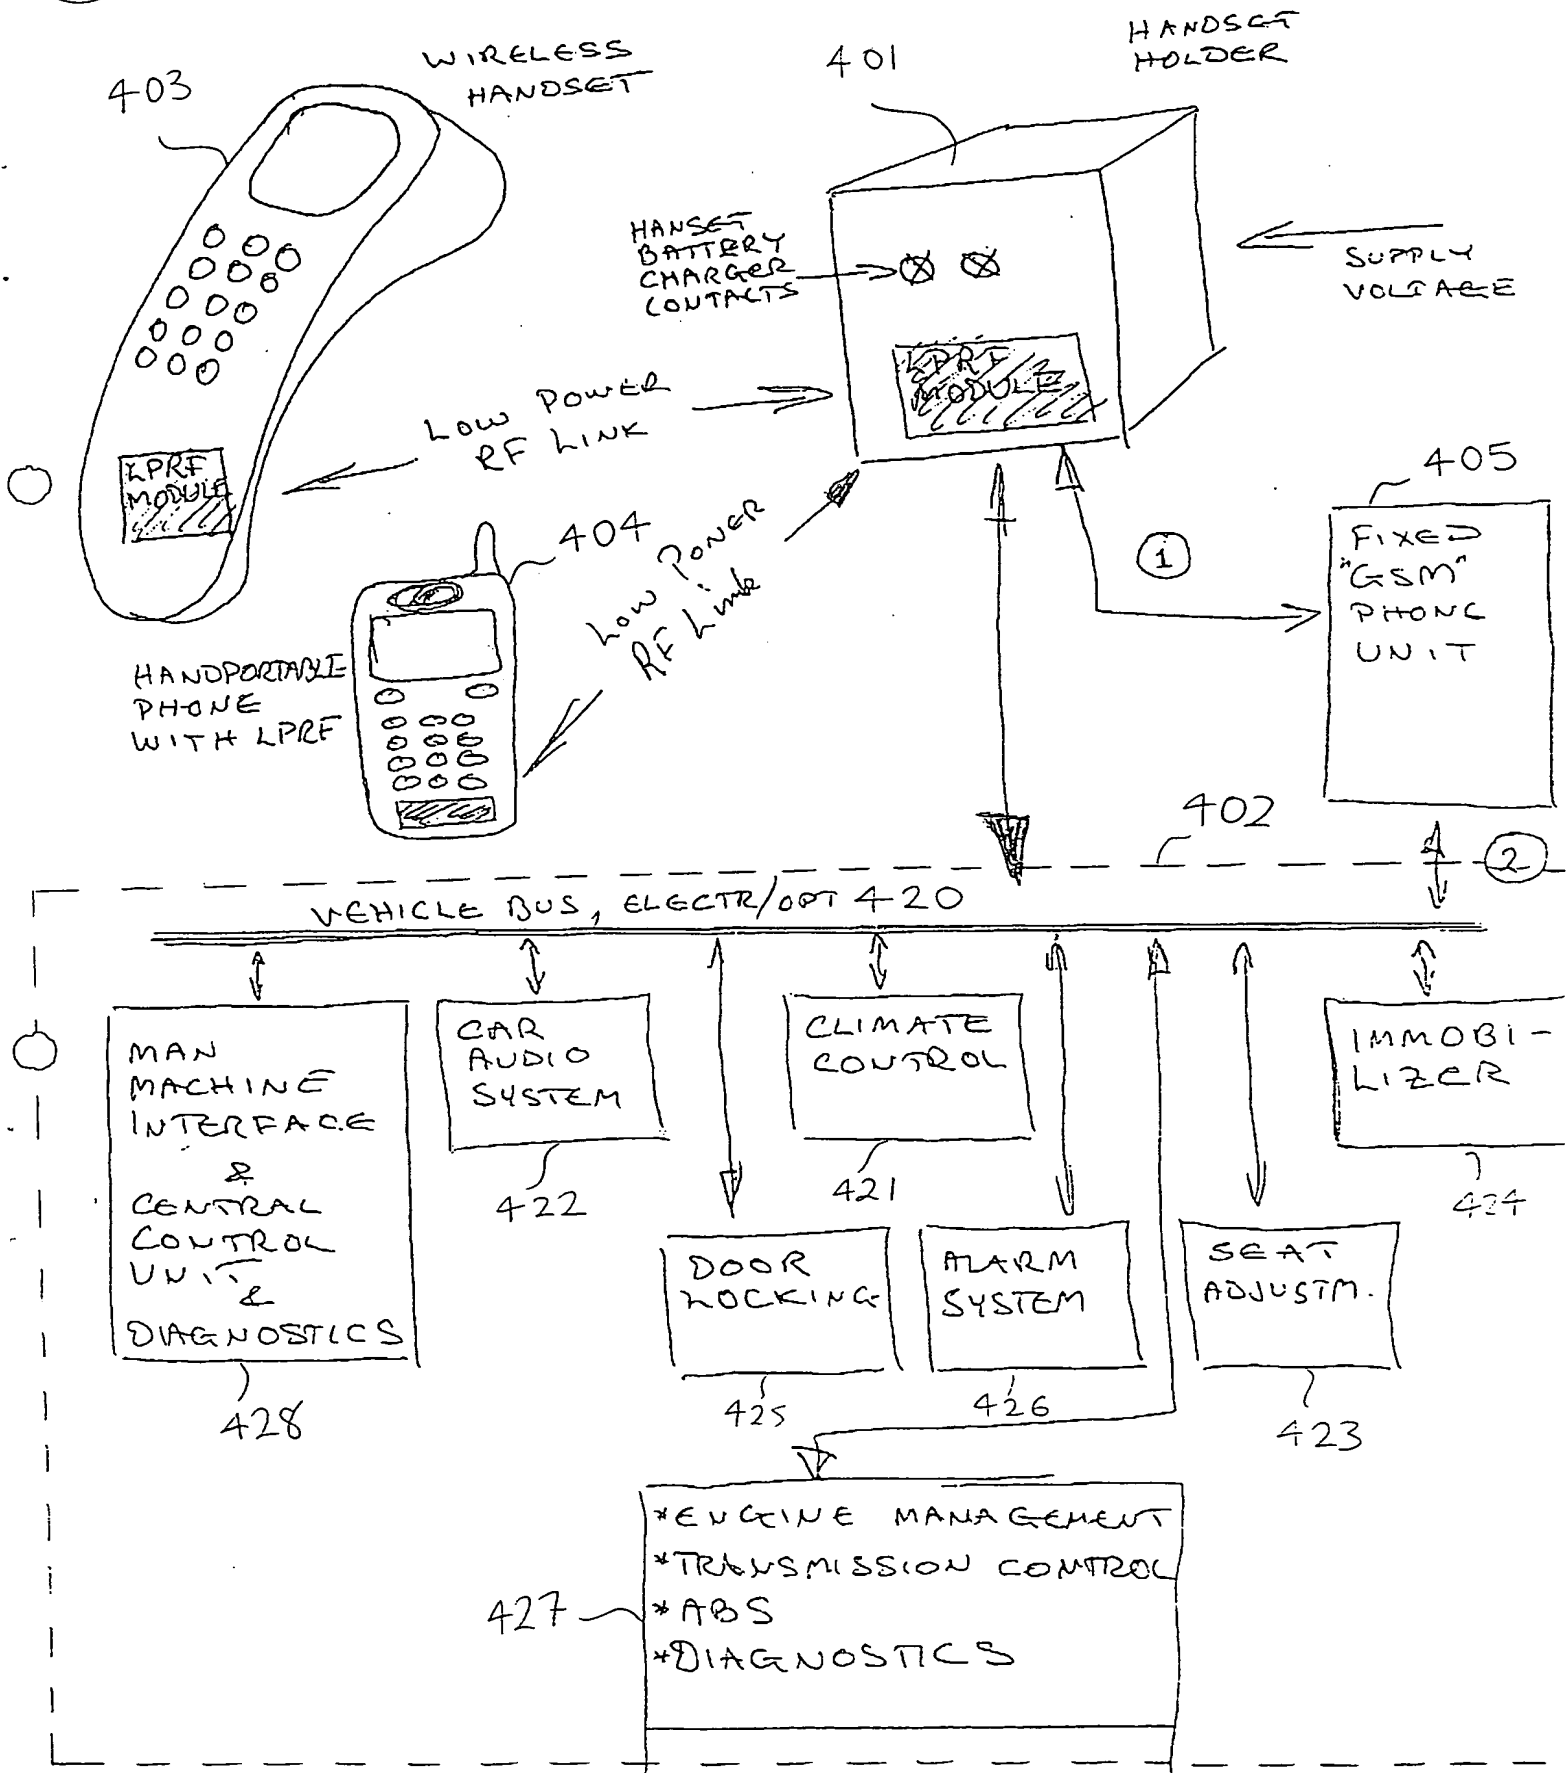 403
WIRELESS
HANDSET
401
HANDSET
HOLDER
HANSET
BATTERY
CHARGER
CONTACTS
SUPPLY
VOLTAGE
LPRF
MODULE
LOW POWER
RF LINK
LPRF
MODULE
404
LOW POWER
RF Link
HANDPORTABLE
PHONE
WITH LPRF
1
405
FIXED
"GSM"
PHONE
UNIT
402
2
VEHICLE BUS, ELECTR/OPT 420
MAN
MACHINE
INTERFACE
&
CENTRAL
CONTROL
UNIT
&
DIAGNOSTICS
428
CAR
AUDIO
SYSTEM
422
CLIMATE
CONTROL
421
IMMOBI-
LIZER
424
DOOR
LOCKING
425
ALARM
SYSTEM
426
SEAT
ADJUSTM.
423
427
*ENGINE MANAGEMENT
*TRANSMISSION CONTROL
*ABS
*DIAGNOSTICS